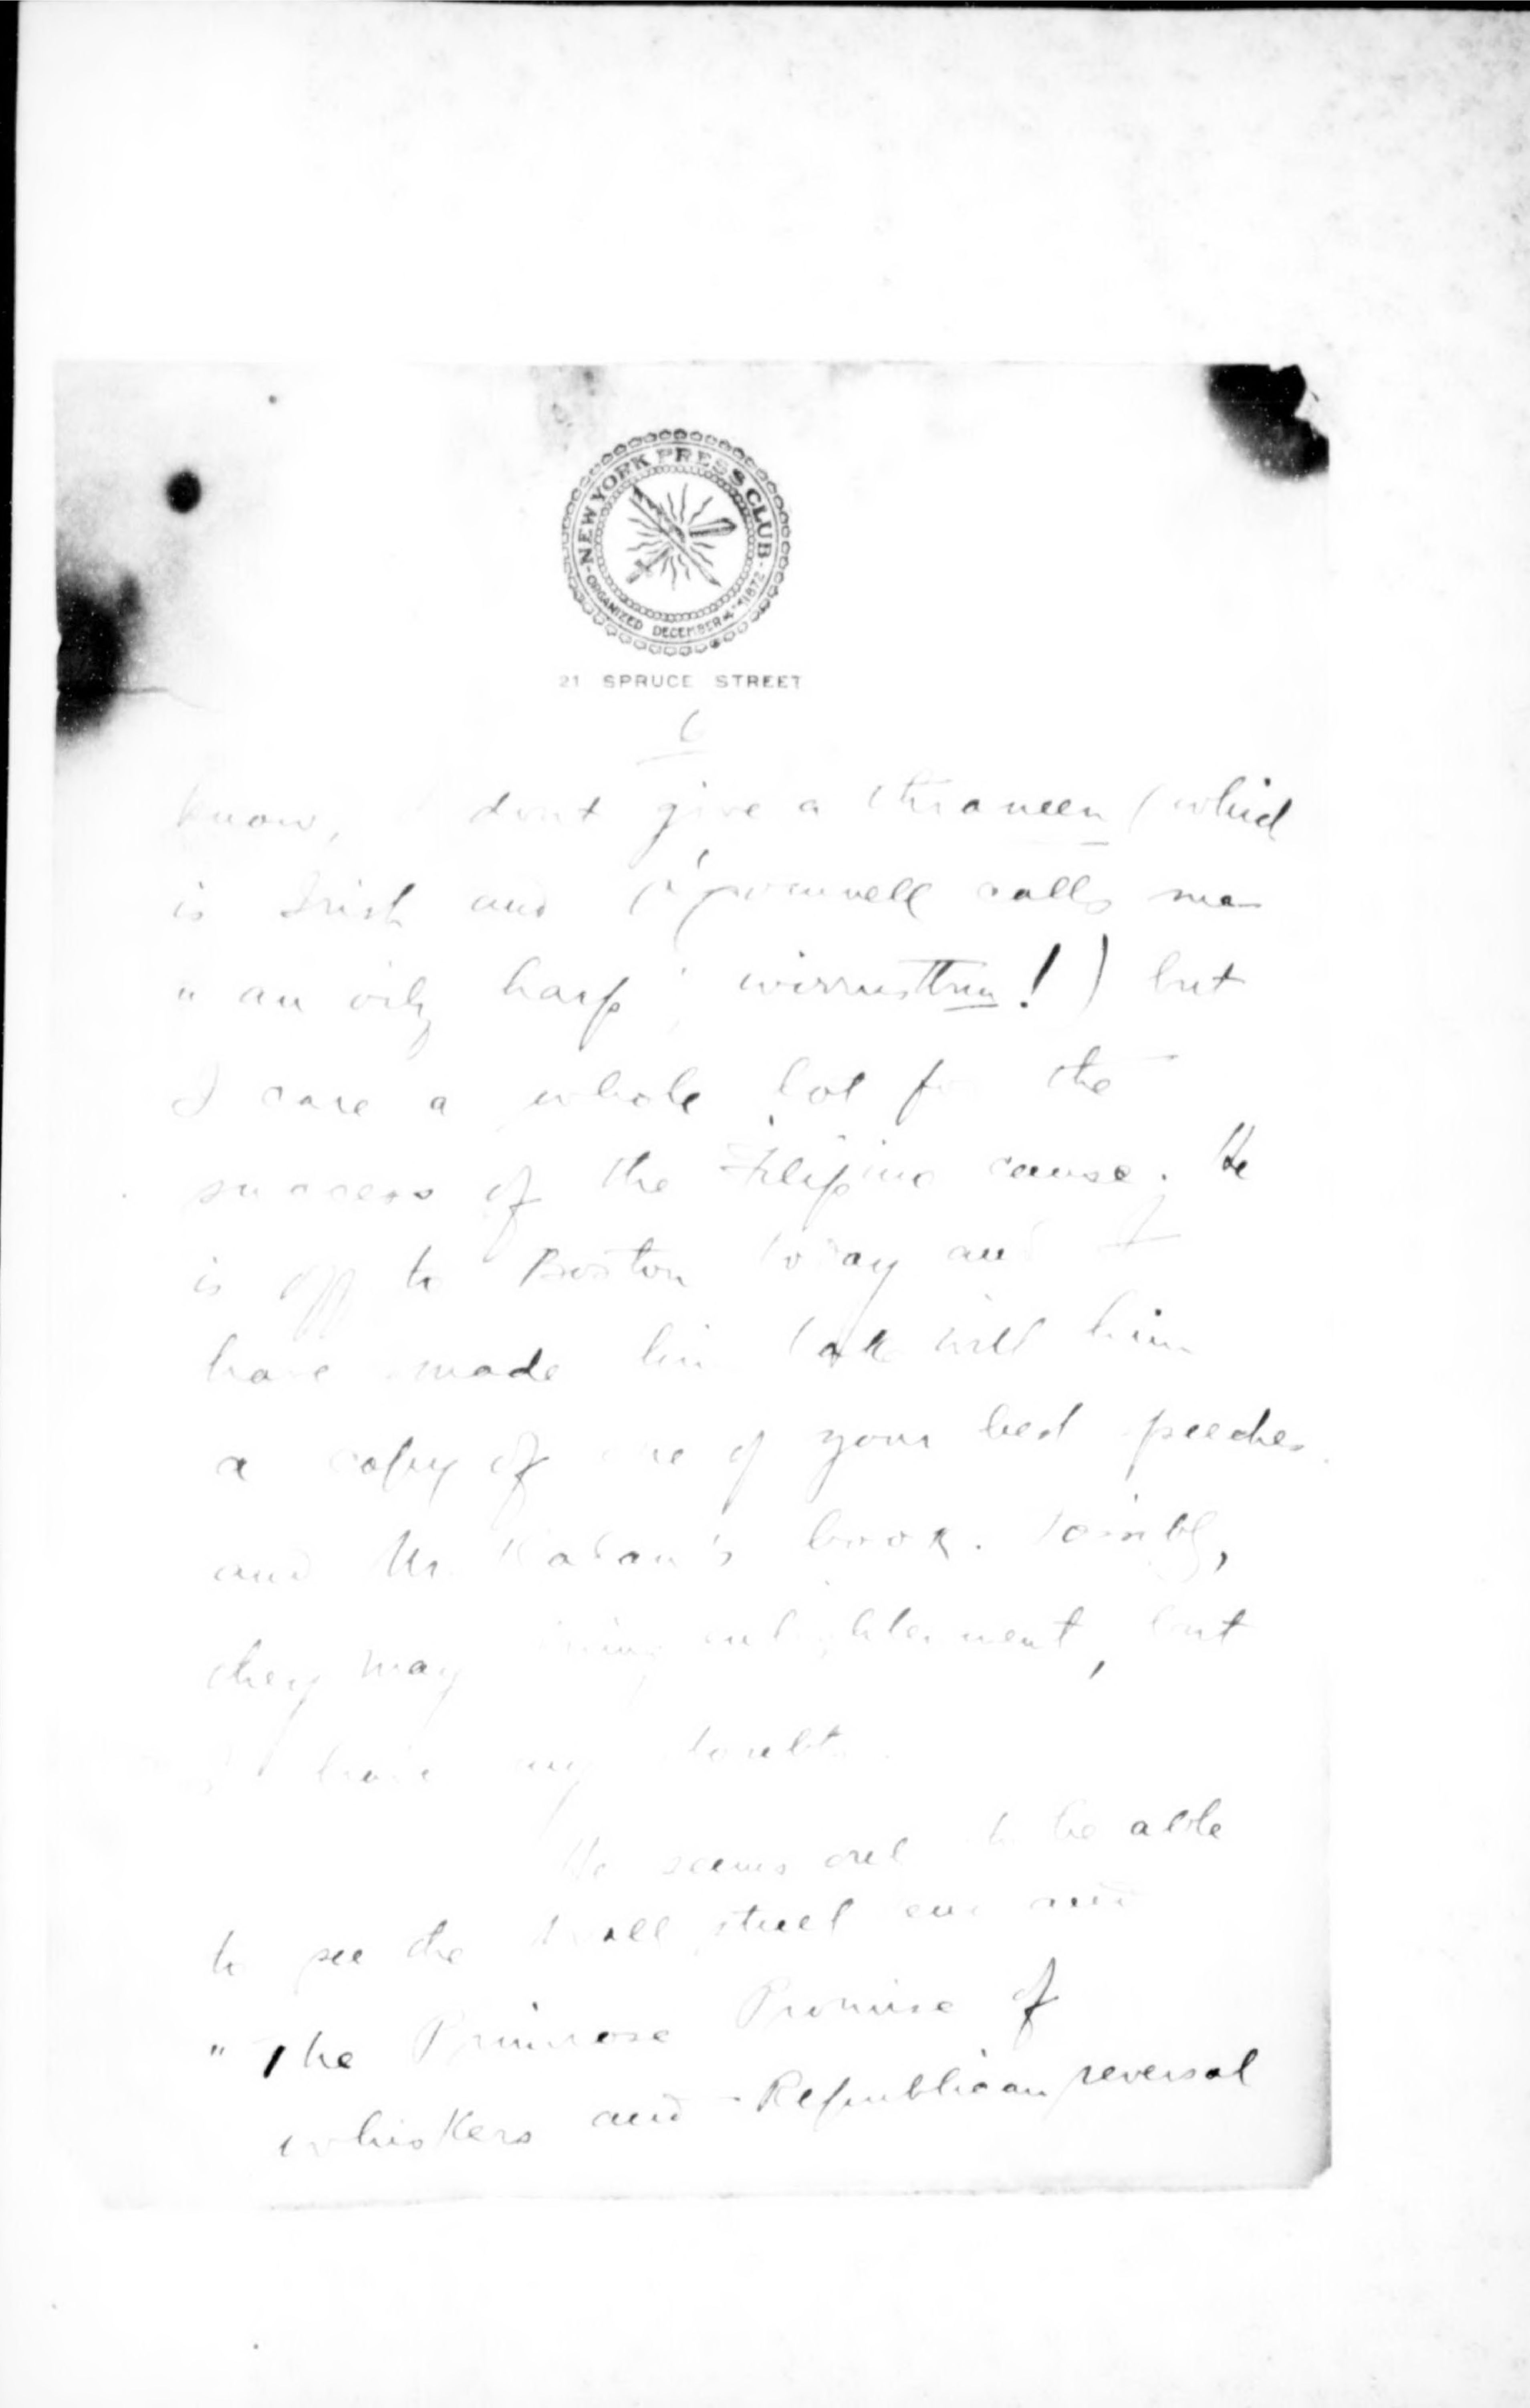 NEW YORK PRESS CLUB
ORGANIZED DECEMBER 4TH 1872
21 SPRUCE STREET
6
know, I dont give a thraneen (which
is Irish and calls me
"an oily harp", wirrusthru!) but
I care a whole lot for the
success of the Filipino cause. He
is off to Boston today and I
have made him take with him
a copy of one of your best speeches
and Mr. book. Possibly,
they may bring enlightenment, but
I have my doubts.
He seems only to be able
to see the Wall street end and
"The Primrose Promise of
whiskers and Republican reversal